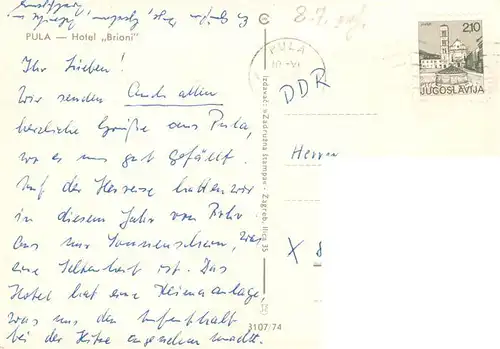 PULA — Hotel „Brioni"
Ihr Lieben!
Wir senden Euch allen
herzliche Grüße aus Pula,
wo es uns gut gefällt.
Auf der Herreise hatten wir
in diesem Jahr von Ruhr
aus nur Sonnenschein, was
eine Seltenheit ist. Das
Hotel hat eine Klimaanlage,
was uns den Aufenthalt
bei der Hitze angenehm macht.
Izdavač: »Zadružna štampa« - Zagreb, Ilica 35
3107/74
PULA
2,10
JUGOSLAVIJA
DDR
Herrn
X